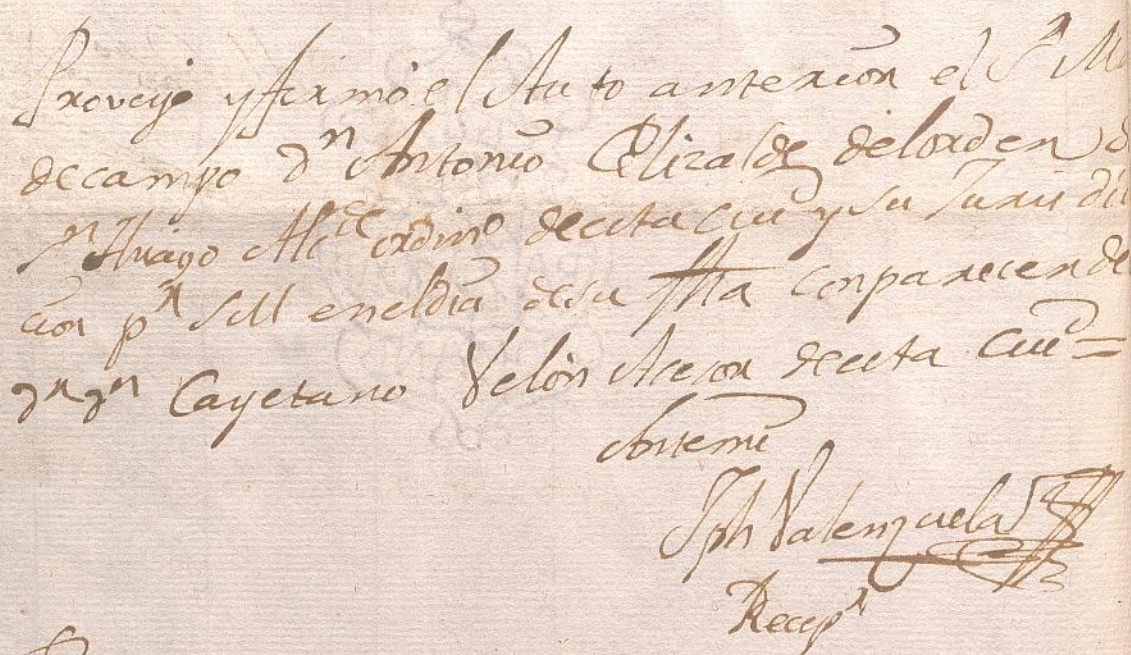 Proveyò y firmò el Auto anterior el S.r M
de campo D.n Antonio Elizalde del orden d
S.n Thiago Alc.de ordin.o de esta Ciu.d y su Jurisdic
cion p.r S M en el dia de su fha con parecer de
D.n Cayetano Belòn Acesor de esta Ciu.d =
Antemi
Jph Valenzuela
Recep.r